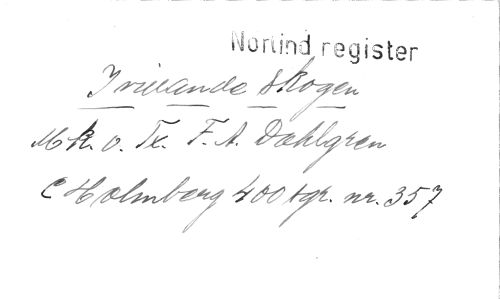 Norlind register
I villande skogen
Mk. o. Tx. F. A. Dahlgren
C Holmberg 400 tgr. nr. 357